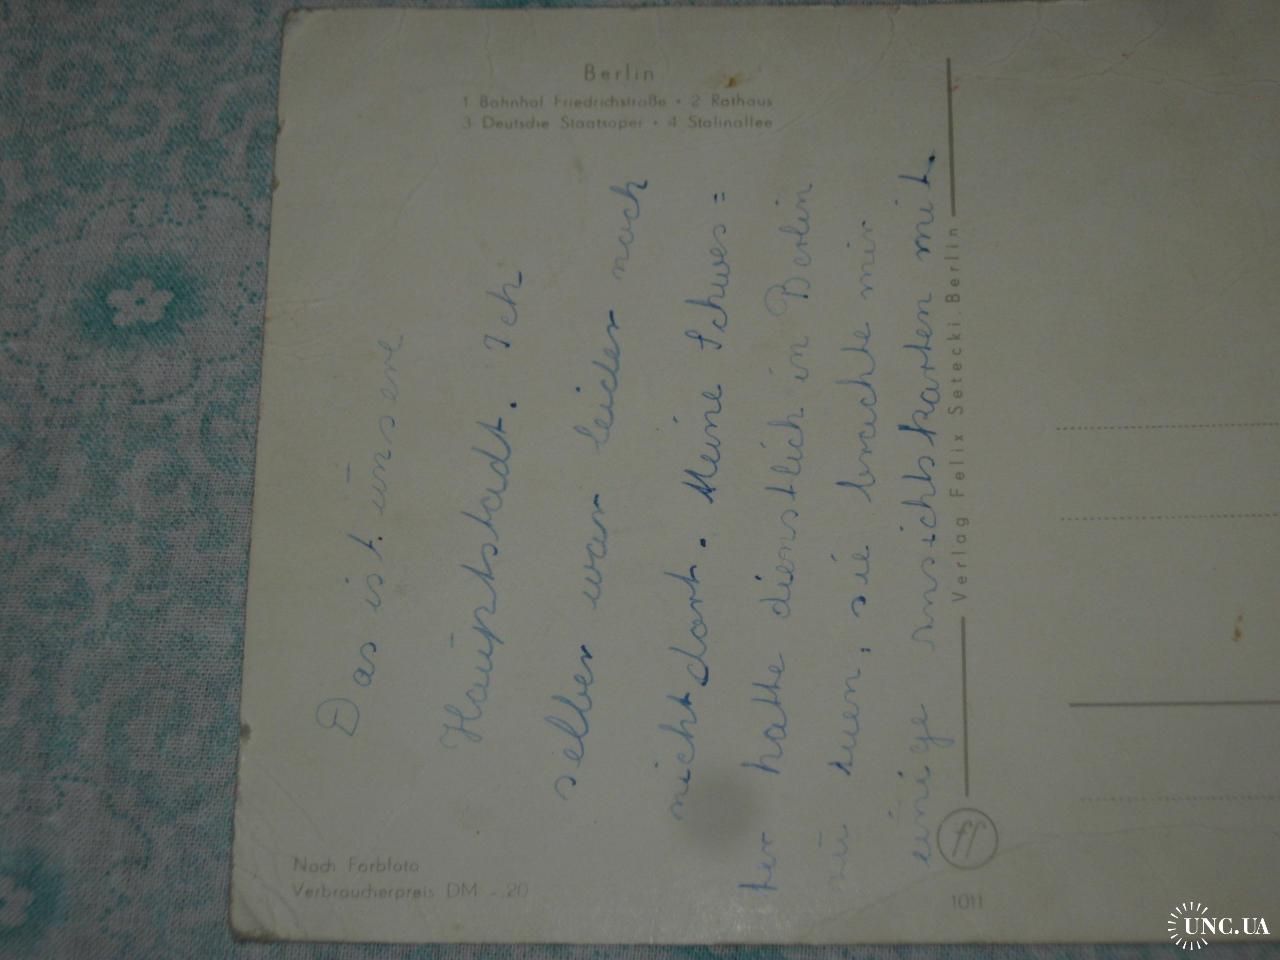 Berlin
1 Bahnhof Friedrichstraße • 2 Rathaus
3 Deutsche Staatsoper • 4 Stalinallee
Das ist unsere
Hauptstadt. Ich
selber war leider noch
nicht dort. Meine Schwes=
ter hatte dienstlich in Berlin
zu tuen, sie brachte mir
einige Ansichtskarten mit.
Verlag Felix Setecki, Berlin
Nach Farbfoto
Verbraucherpreis DM -.20
ff
1011
UNC.UA